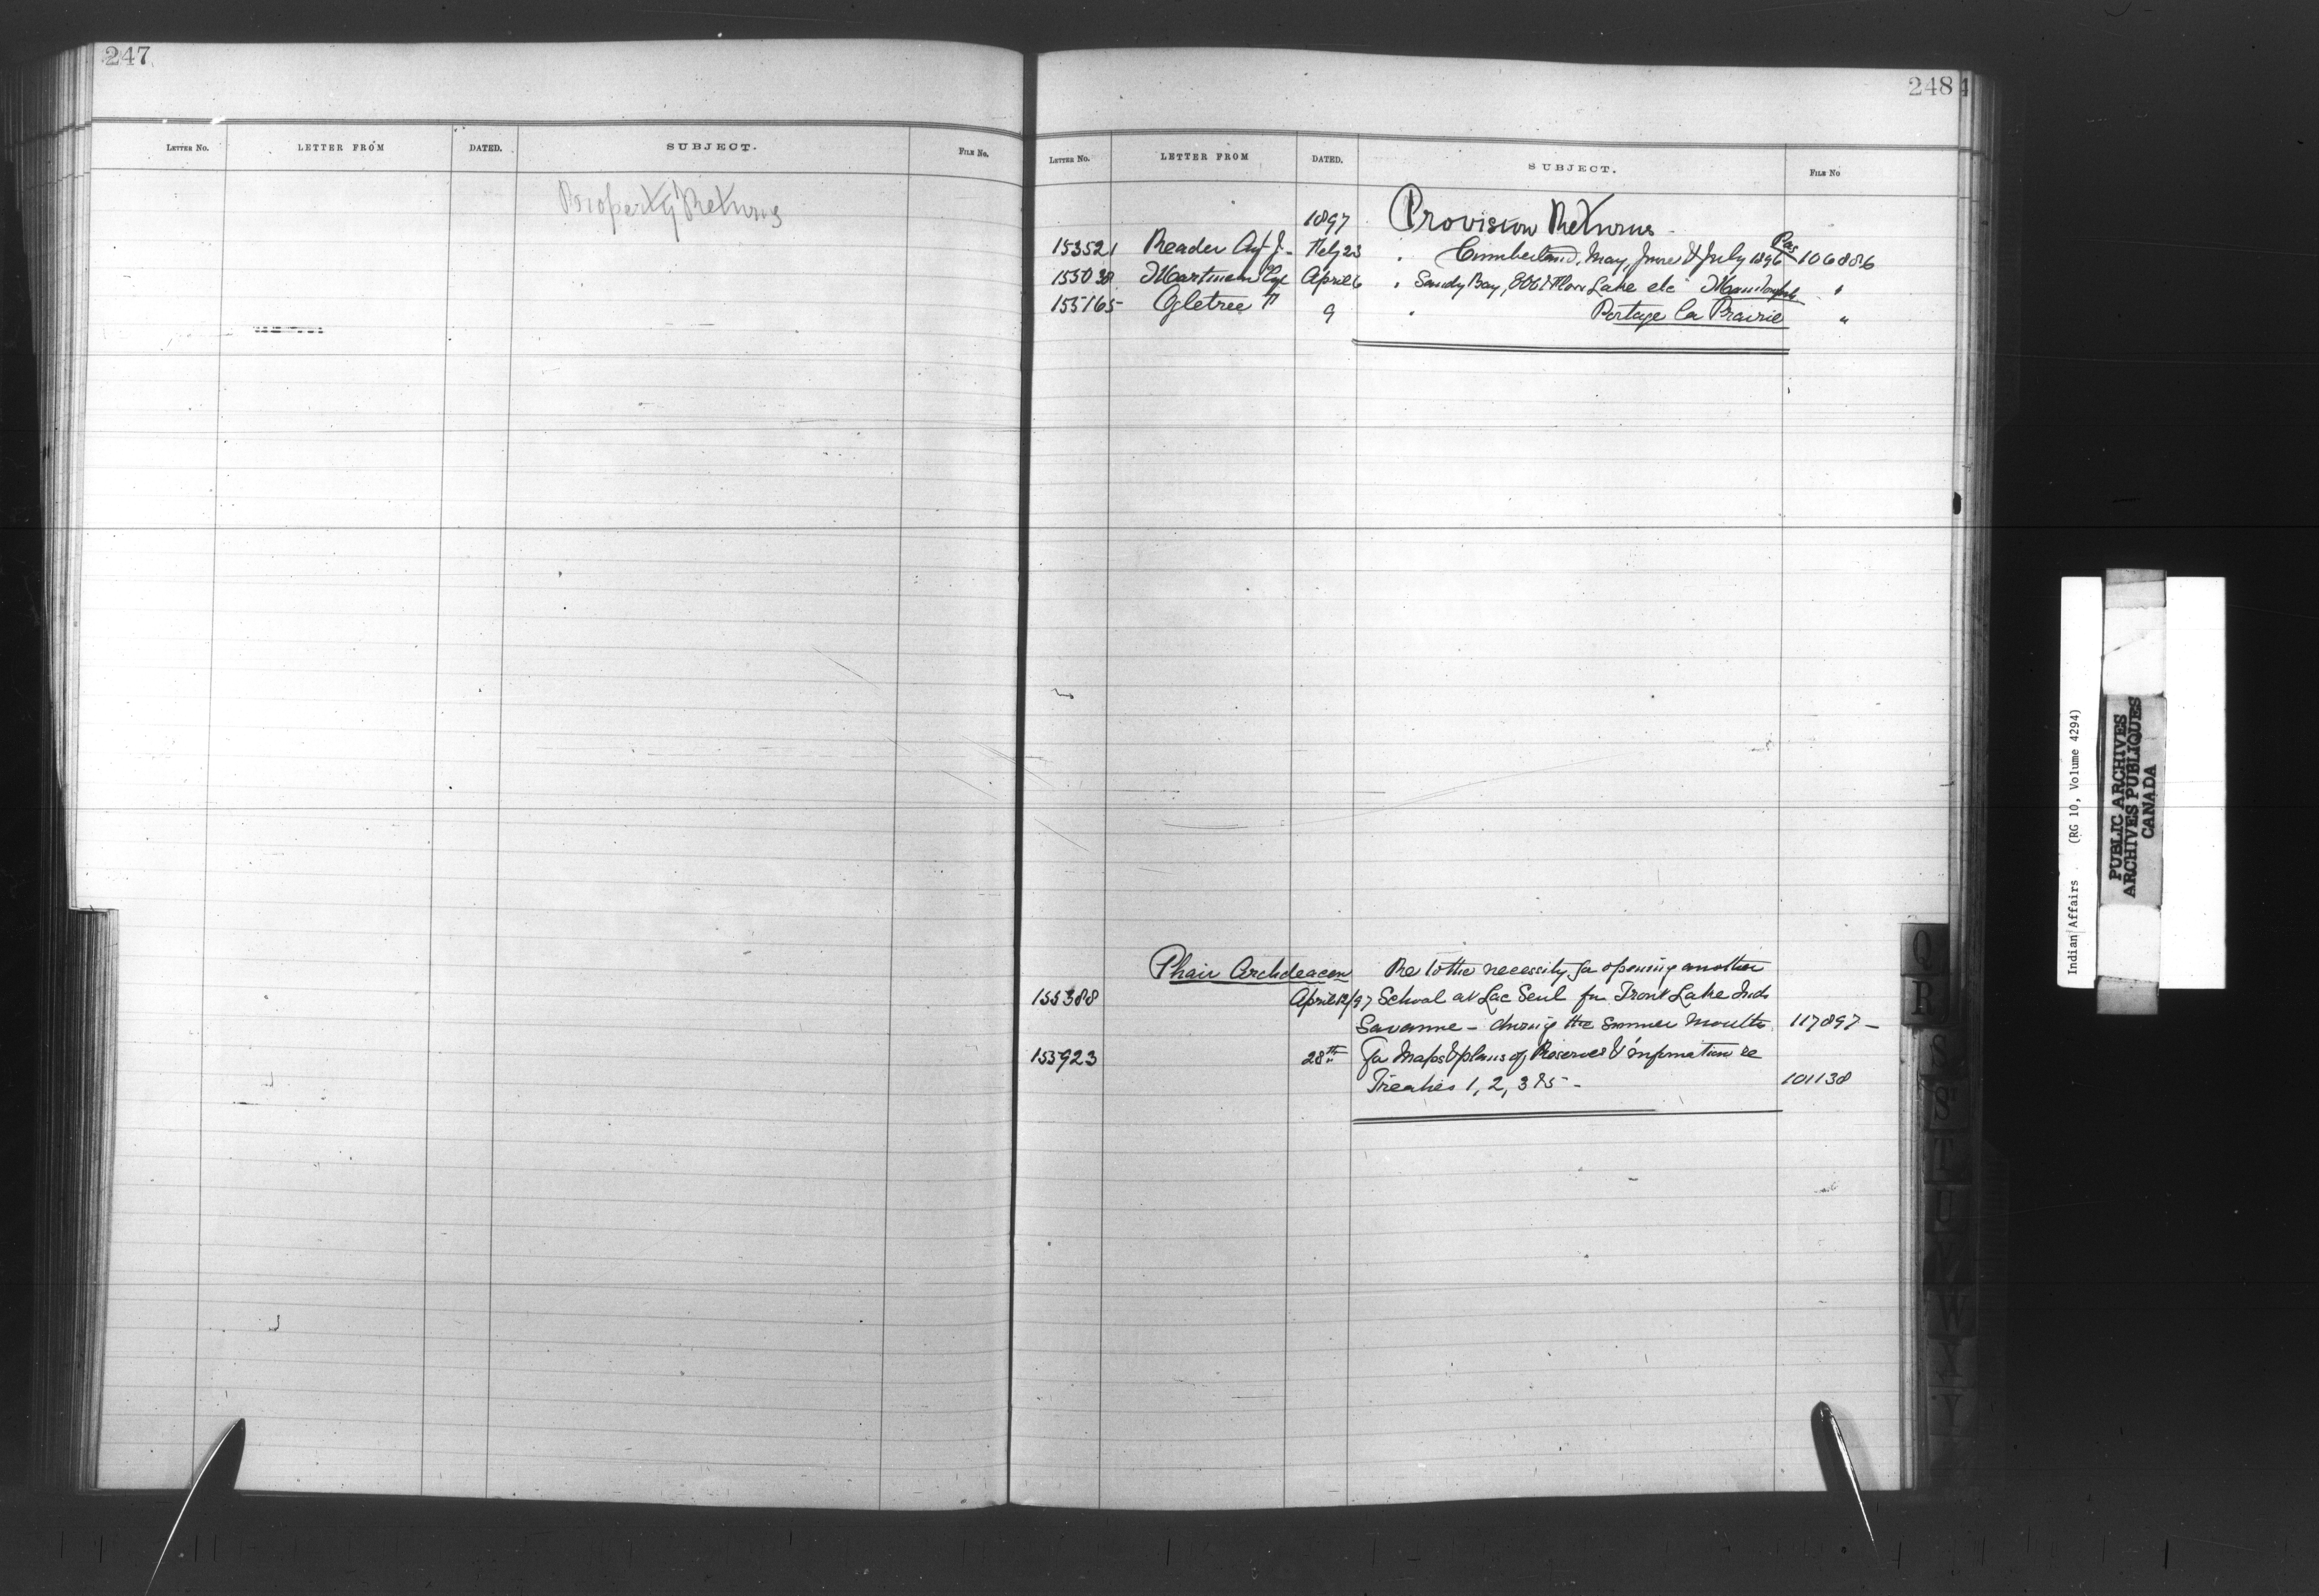 247
LETTER No. LETTER FROM DATED. SUBJECT. FILE No.
Property Returns
248
LETTER No. LETTER FROM DATED. SUBJECT. FILE No
1897 Provision Returns
153521 Reader Agt J. Feby 23 " Cumberland, May, June & July 1896 Pas 106886
155038 Martineau April 6 " Sandy Bay, Lake etc "
155165 Ogletree F 9 " Portage la Prairie "
Phair Archdeacon Re to the necessity for opening another
155388 April 12/97 School at Lac Seul for Trout Lake Inds
Savanne - during the summer months 117897 -
155923 28th for Maps & plans of Reserves & information re
Treaties 1, 2, 3 & 5 - 101138
Q
R
S
S
T
U
V
W
Y
Indian Affairs (RG 10, Volume 4294)
PUBLIC ARCHIVES
ARCHIVES PUBLIQUES
CANADA